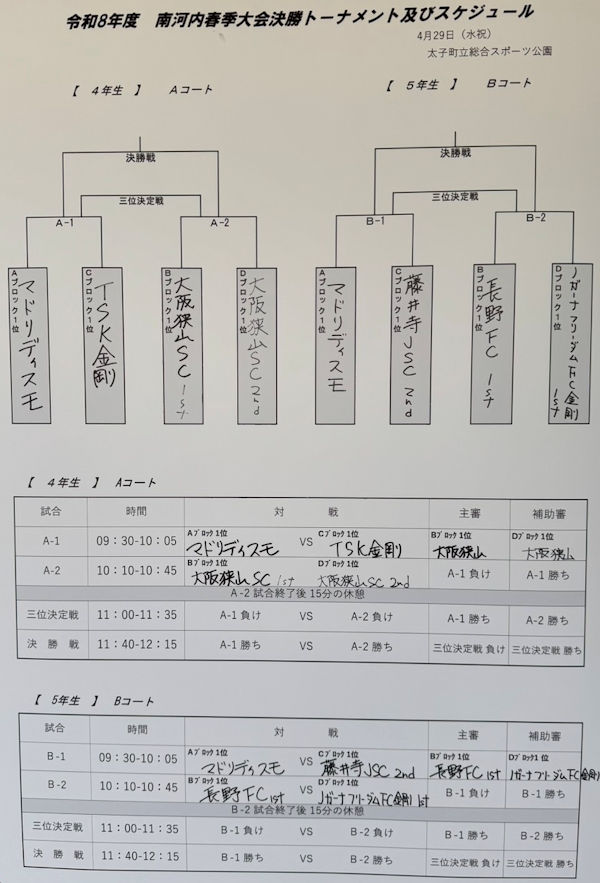 令和8年度 南河内春季大会決勝トーナメント及びスケジュール
4月29日（水祝）
太子町立総合スポーツ公園
【 4年生 】 Aコート
【 5年生 】 Bコート
決勝戦
決勝戦
三位決定戦
三位決定戦
A-1
A-2
B-1
B-2
Aブロック1位
マドリディスモ
Cブロック1位
TSK金剛
Bブロック1位
大阪狭山SC 1st
Dブロック1位
大阪狭山SC 2nd
Aブロック1位
マドリディスモ
Cブロック1位
藤井寺JSC 2nd
Bブロック1位
長野FC 1st
Dブロック1位
Jガーナフリーダム FC金剛 1st
【 4年生 】 Aコート
試合 時間 対 戦 主審 補助審
A-1 09：30-10：05 Aブロック1位 マドリディスモ VS Cブロック1位 TSK金剛 Bブロック1位 大阪狭山 Dブロック1位 大阪狭山
A-2 10：10-10：45 Bブロック1位 大阪狭山SC 1st Dブロック1位 大阪狭山SC 2nd A-1 負け A-1 勝ち
A-2 試合終了後 15分の休憩
三位決定戦 11：00-11：35 A-1 負け VS A-2 負け A-1 勝ち A-2 勝ち
決 勝 戦 11：40-12：15 A-1 勝ち VS A-2 勝ち 三位決定戦 負け 三位決定戦 勝ち
【 5年生 】 Bコート
試合 時間 対 戦 主審 補助審
B-1 09：30-10：05 Aブロック1位 マドリディスモ VS Cブロック1位 藤井寺JSC 2nd Bブロック1位 長野FC 1st Dブロック1位 Jガーナフリーダム FC金剛 1st
B-2 10：10-10：45 Bブロック1位 長野FC 1st Dブロック1位 Jガーナフリーダム FC金剛 1st B-1 負け B-1 勝ち
B-2 試合終了後 15分の休憩
三位決定戦 11：00-11：35 B-1 負け VS B-2 負け B-1 勝ち B-2 勝ち
決 勝 戦 11：40-12：15 B-1 勝ち VS B-2 勝ち 三位決定戦 負け 三位決定戦 勝ち